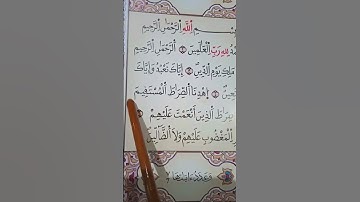 اِ۬للَّهِ اِ۬لرَّحْمَٰنِ اِ۬لرَّحِيمِ
لِلهِ رَبِّ اِ۬لْعَٰلَمِينَ اَ۬لرَّحْمَٰنِ اِ۬لرَّحِيمِ
مَلِكِ يَوْمِ اِ۬لدِّينِ إِيَّاكَ نَعْبُدُ وَإِيَّاكَ
اَ۪هْدِنَا اَ۬لصِّرَٰطَ اَ۬لْمُسْتَقِيمَ
صِرَٰطَ اَ۬لذِينَ أَنْعَمْتَ عَلَيْهِمْ
اِ۬لْمَغْضُوبِ عَلَيْهِمْ وَلَا اَ۬لضَّآلِّينَ